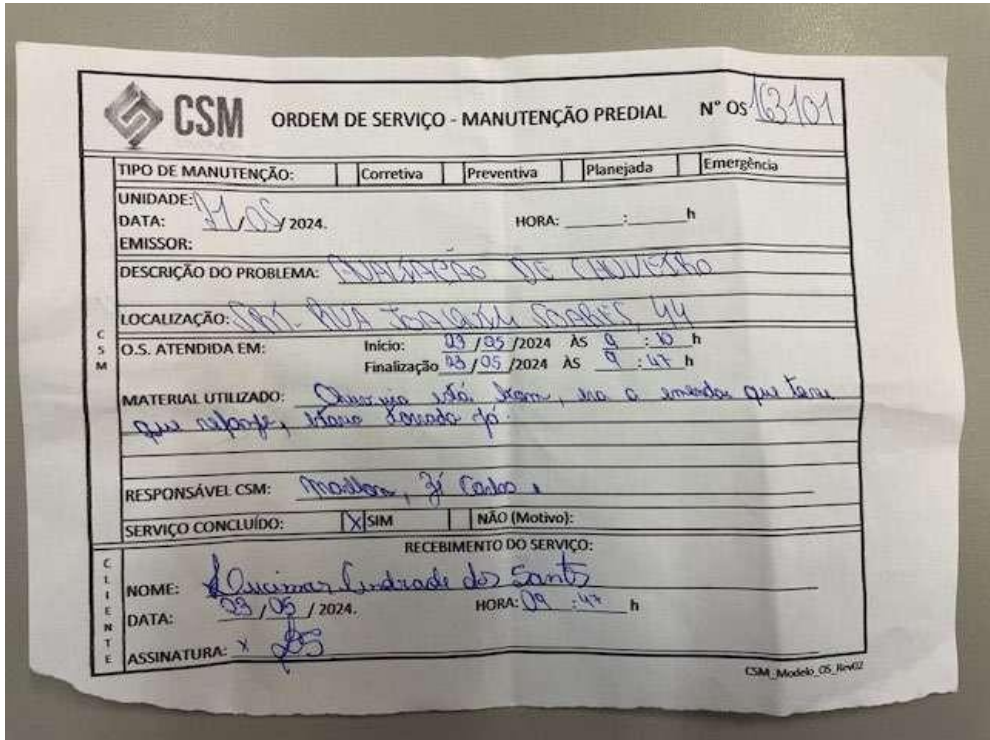 CSM ORDEM DE SERVIÇO - MANUTENÇÃO PREDIAL N° OS 163101
TIPO DE MANUTENÇÃO: Corretiva Preventiva Planejada Emergência
UNIDADE:
DATA: /05/2024. HORA: ____:____h
EMISSOR:
DESCRIÇÃO DO PROBLEMA: AVALIAÇÃO DE CHUVEIRO
LOCALIZAÇÃO: SRT- RUA JOAQUIM SOARES, 44
C S M
O.S. ATENDIDA EM: Início: /05/2024 ÀS 9:10 h
Finalização /05/2024 ÀS 9:47 h
MATERIAL UTILIZADO: está bom, era a emenda que teve
que, já.
RESPONSÁVEL CSM: Zé Carlos
SERVIÇO CONCLUÍDO: X SIM NÃO (Motivo):
RECEBIMENTO DO SERVIÇO:
C L I E N T E
NOME: Lucimar Andrade dos Santos
DATA: /05/2024. HORA: 09:47 h
ASSINATURA: X
CSM_Modelo_OS_Rev02